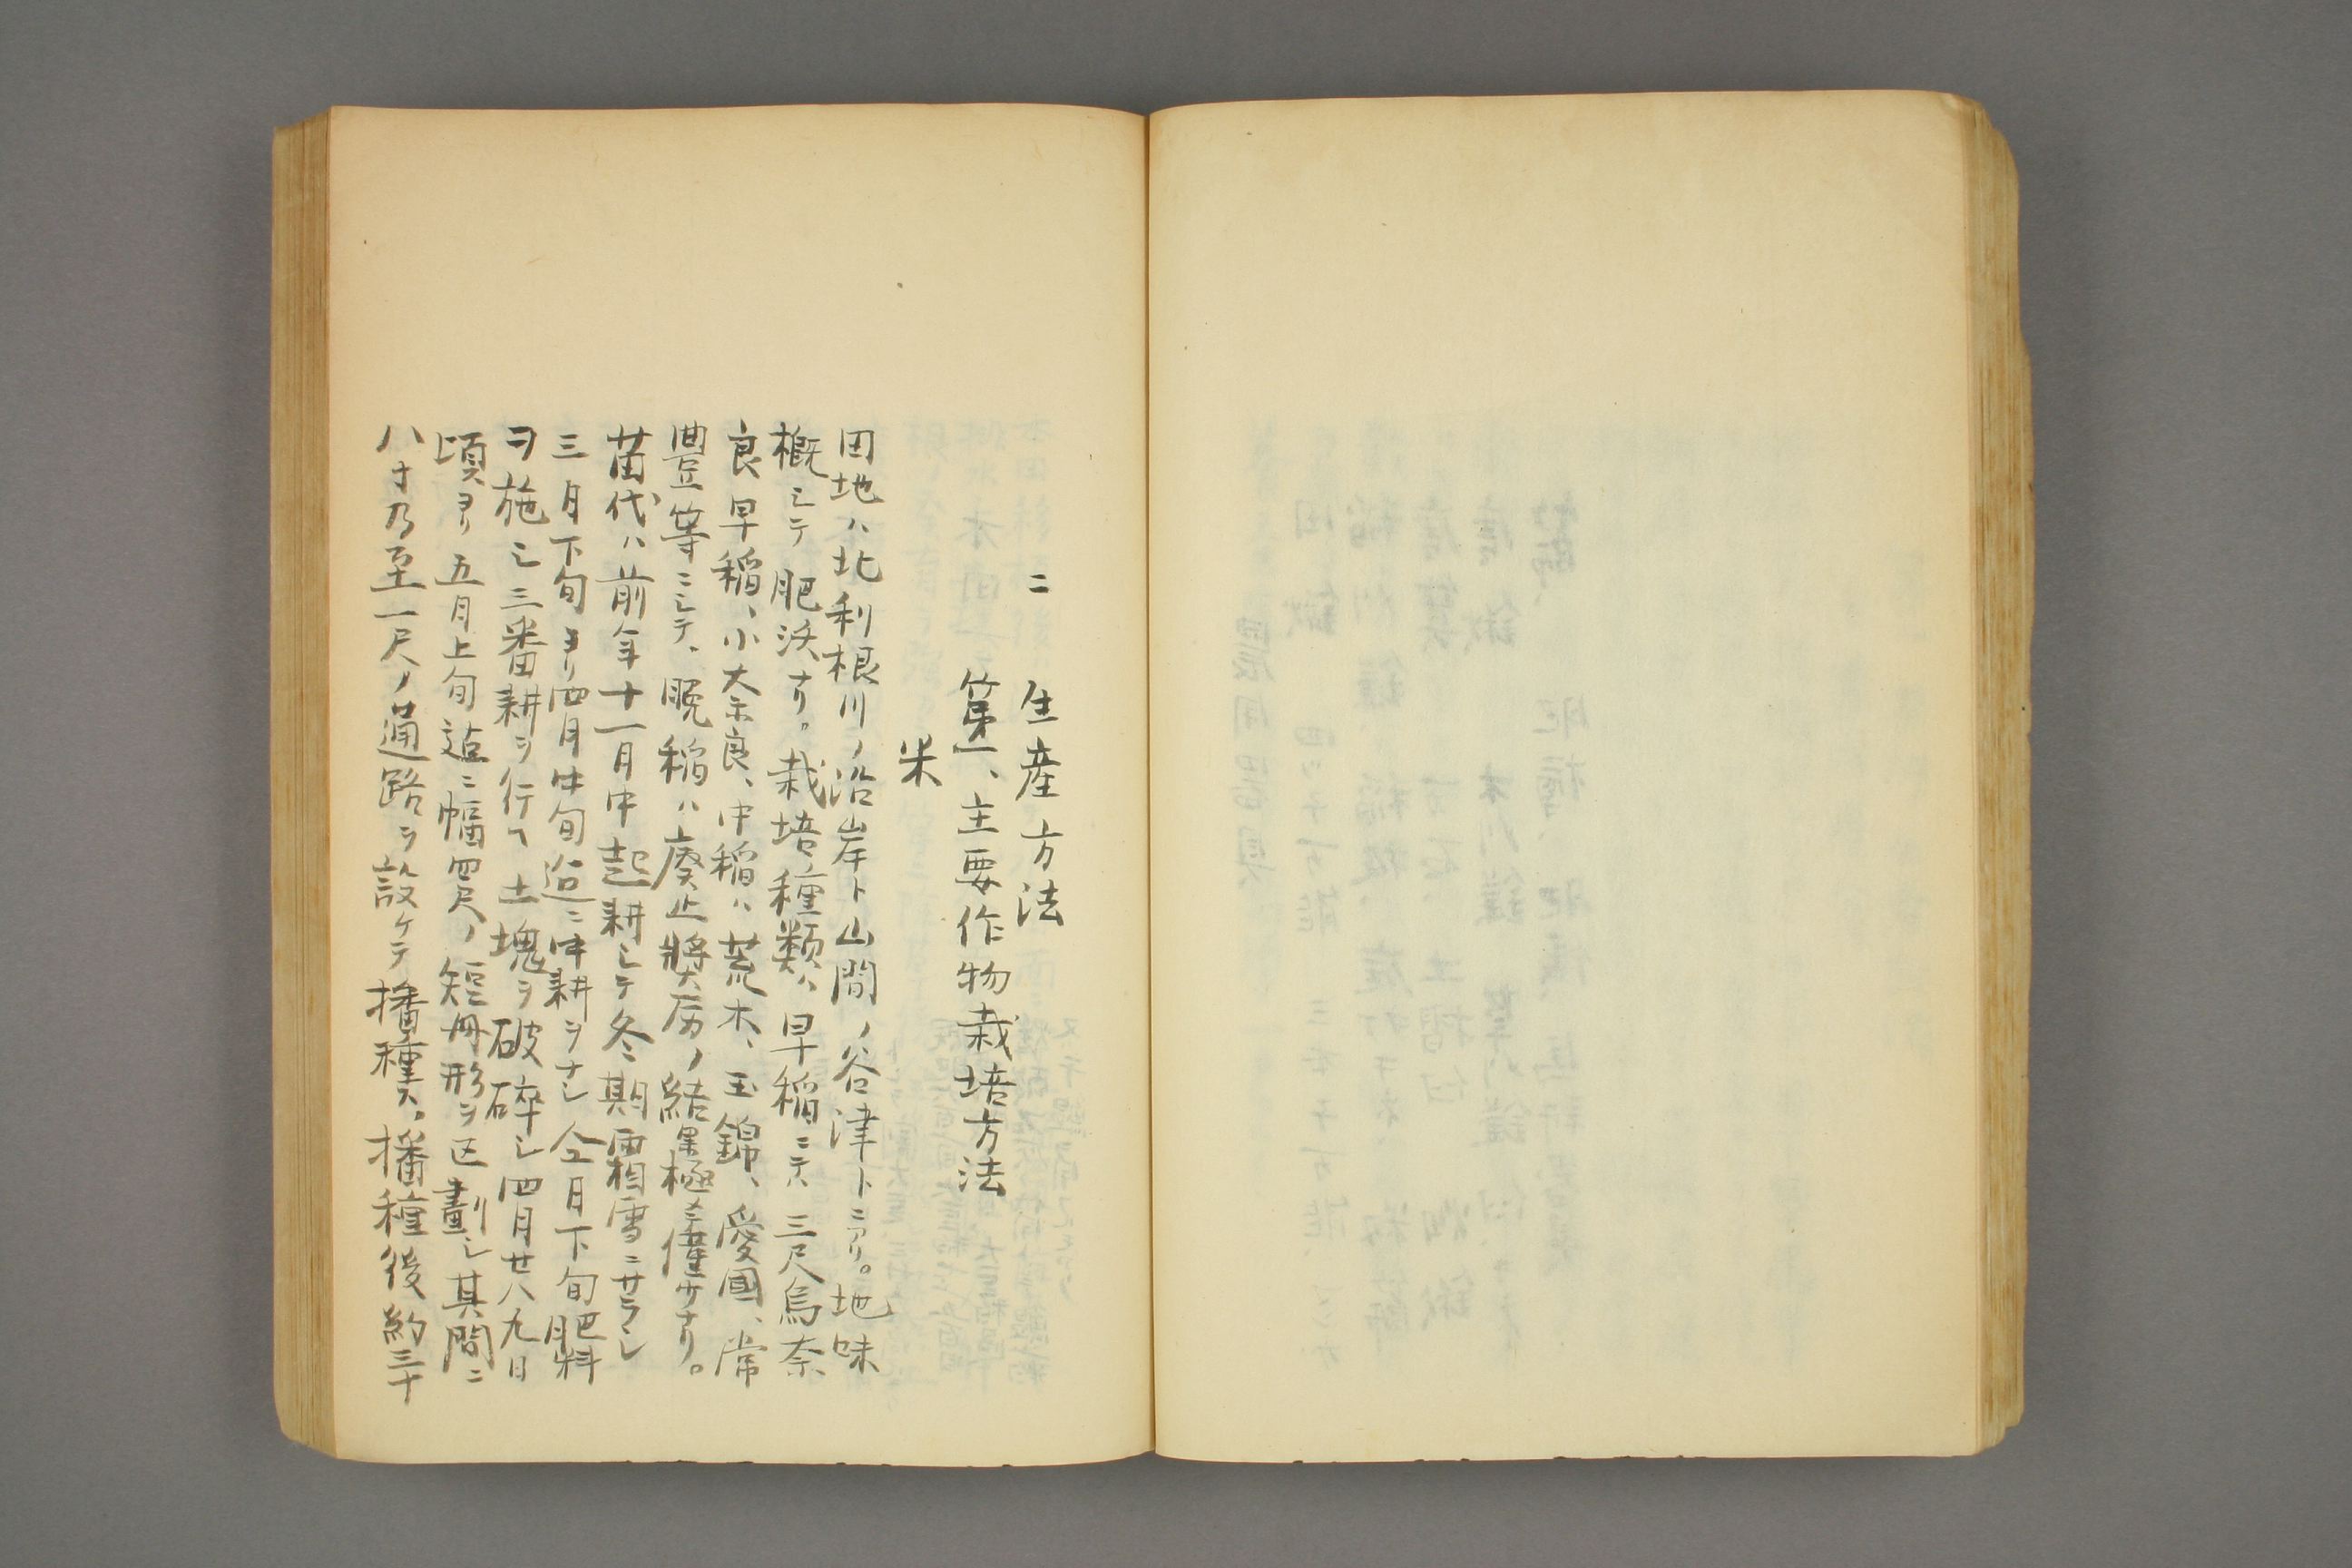 二　生産方法
第一、主要作物栽培方法
米
田地ハ北利根川ノ沿岸ト山間ノ谷津トニアリ。地味
概シテ肥沃ナリ。栽培種類ハ早稲ニテハ三尺烏奈
良早稲、小奈良、中稲ハ荒木、玉錦、愛國、常
豊等ニシテ、晩稲ハ廃止奬励ノ結果極メテ僅少ナリ。
苗代ハ前年十一月中起耕シテ冬期霜雪ニサラシ
三月下旬ヨリ四月中旬迠ニ中耕ヲナシ仝月下旬肥料
ヲ施シ三番耕ヲ行ヘ土塊ヲ破砕シ四月廿八九日
頃ヨリ五月上旬迠ニ幅四尺ノ短冊形ヲ区劃シ其間ニ
八寸乃至一尺ノ通路ヲ設ケテ播種ス。播種後約三十